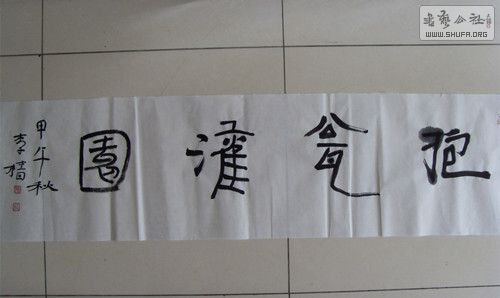 抱瓮灌園
甲午秋
李
書藝公社
WWW.SHUFA.ORG